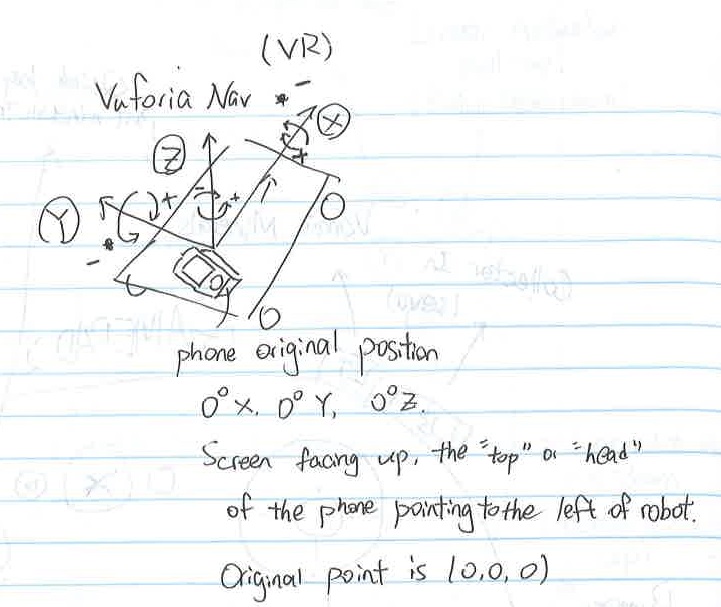 (VR)
Vuforia Nav
- *
X
Z
+
- +
+
Y
* -
phone original position
0° X, 0° Y, 0° Z.
Screen facing up, the "top" or "head"
of the phone pointing to the left of robot.
Original point is (0,0,0)